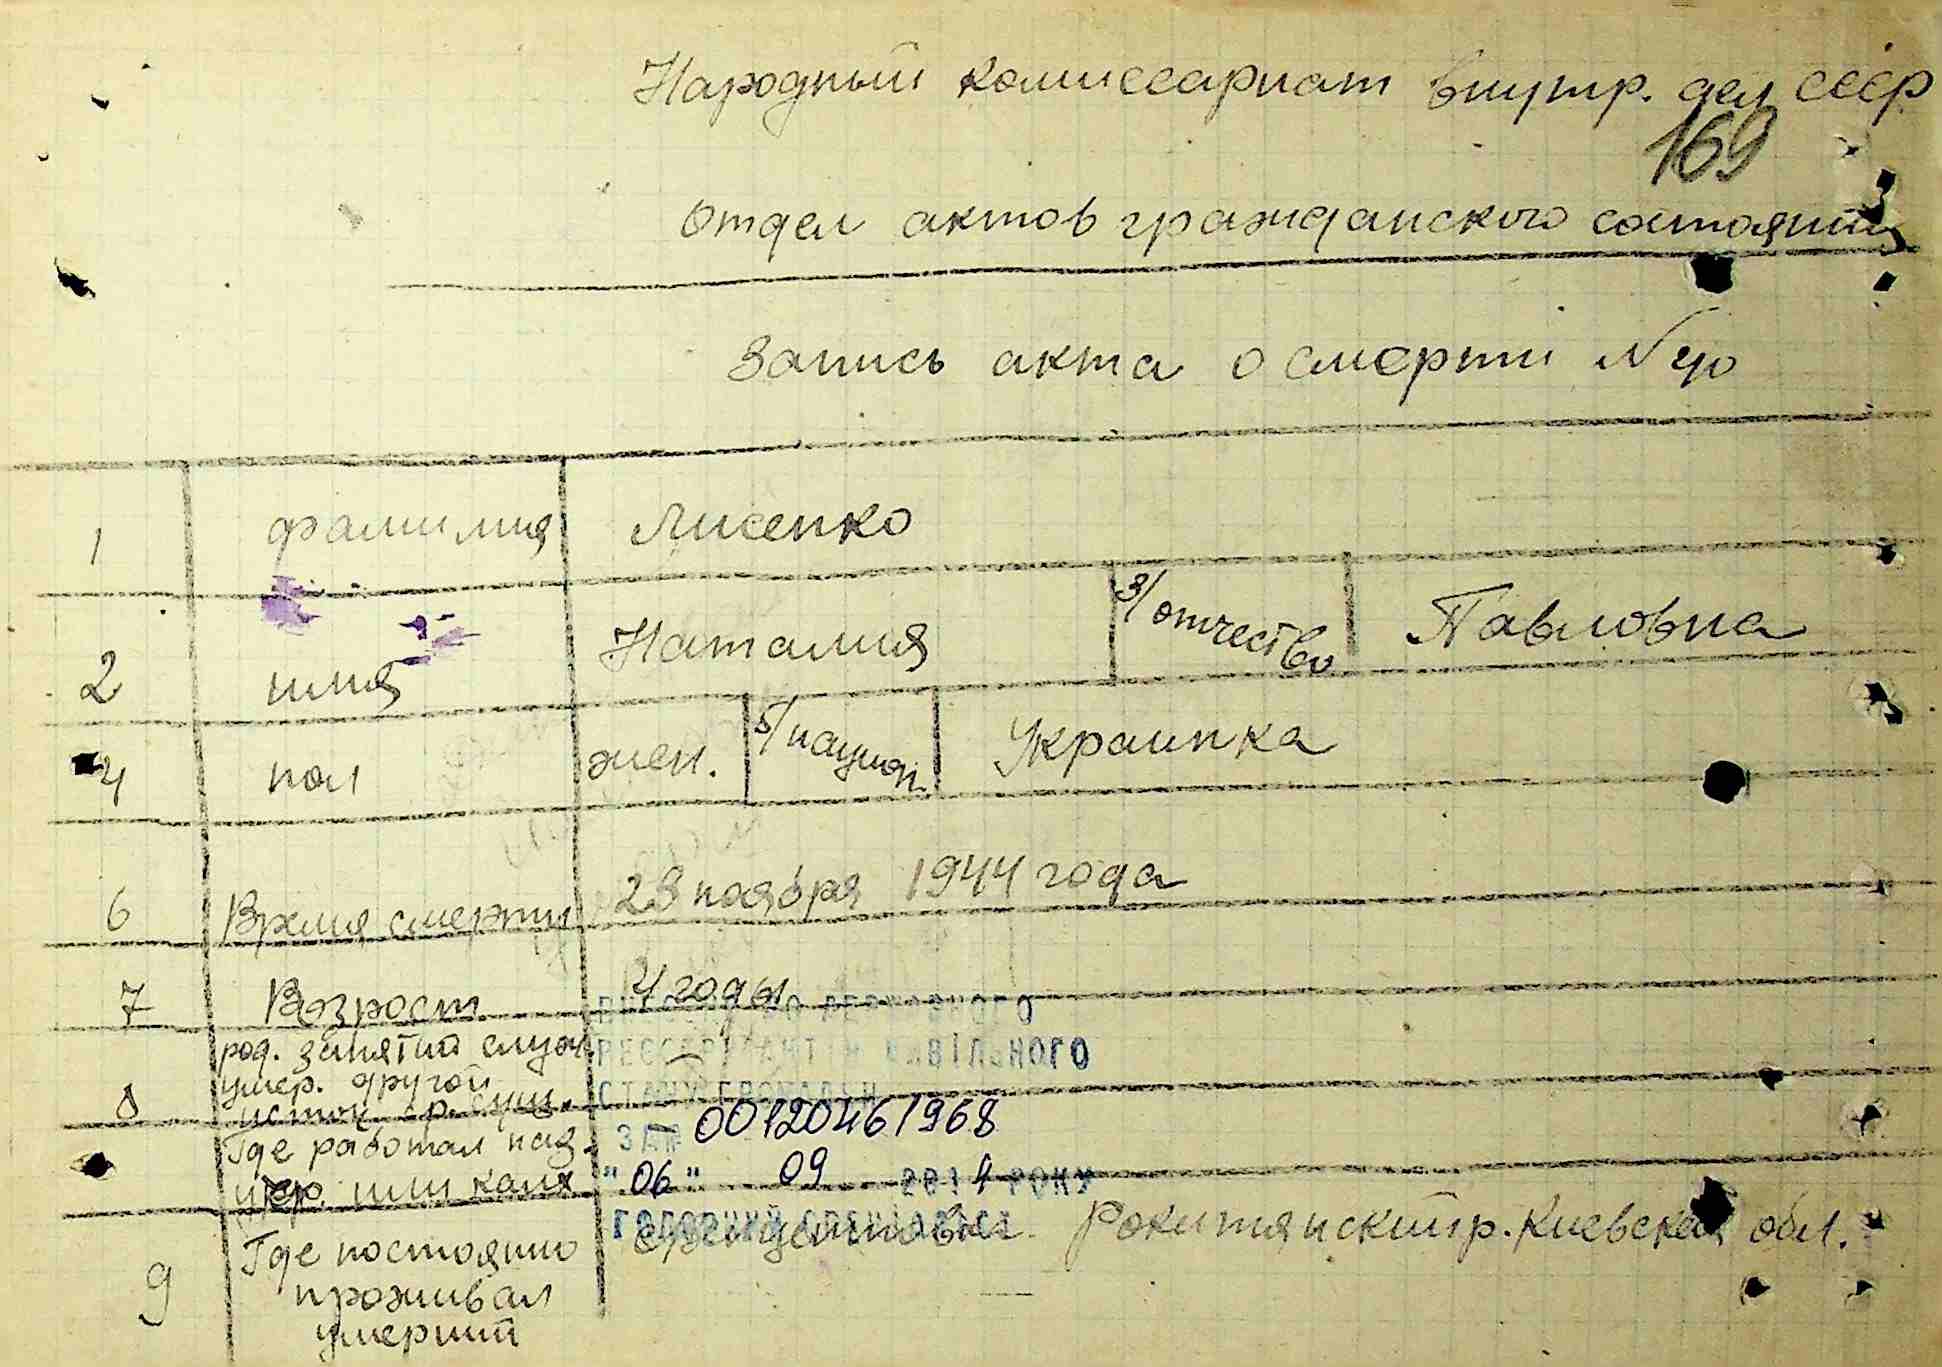 Народный комиссариат внутр. дел СССР
169
Отдел актов гражданского состояния
Запись акта о смерти N 40
1 фамилия Лисенко
2 имя Наталия 3/ отчество Павловна
4 пол жен. 5/ национ. Украинка
6 Время смерти 23 ноября 1944 года
7 Возраст 4 годы
ДЕРЖАВНОГО
род. занятий служ.
РЕЄСТРУ АКТІВ ЦИВІЛЬНОГО
умер. другой
СТАНУ ГРОМАДЯН
8 источ. ср. сущ.
ЗА № 00120461968
Где работал наз.
умер. или
"06" 09 2014 РОКУ
ГОЛОВНИЙ СПЕЦІАЛІСТ
Рокитянский р. Киевская обл.
9 Где постояно
проживал
умерший